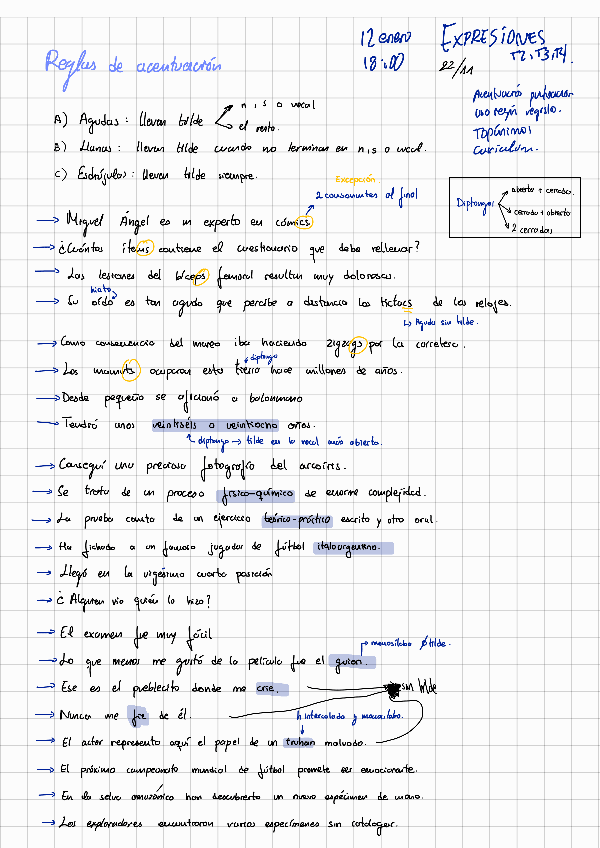 12 enero
18:00
EXPRESIONES
T2, T3, T4.
22/11
Reglas de acentuación
Acentuació puntuación
uso según registro.
Topónimos
Curriculum.
A) Agudas: llevan tilde n, s o vocal
el resto.
B) Llanas: llevan tilde cuando no terminan en n, s o vocal.
C) Esdrújulas: llevan tilde siempre.
Excepción
2 consonantes al final
Diptongos
abierta + cerrada.
cerrada + abierta
2 cerradas
→ Miguel Ángel es un experto en cómics
→ ¿Cuántos ítems contiene el cuestionario que debe rellenar?
→ Las lesiones del bíceps femoral resultan muy dolorosas.
hiato
→ Su oído es tan agudo que percibe a distancia los tictacs de los relojes.
↳ Aguda sin tilde.
→ Como consecuencia del mareo iba haciendo zigzags por la carretera.
diptongo
→ Los mamuts ocuparon esta tierra hace millones de años.
→ Desde pequeño se aficionó a balonmano
→ Tendrá unos veintiséis o veintiocho años.
diptongo → tilde en la vocal más abierta.
→ Conseguí una preciosa fotografía del arcoíris.
→ Se trata de un proceso físico-químico de enorme complejidad.
→ La prueba consta de un ejercicio teórico-práctico escrito y otro oral.
→ Ha fichado a un famoso jugador de fútbol italoargentino.
→ Llegó en la vigésima cuarta posición
→ ¿Alguien vio quién lo hizo?
→ El examen fue muy fácil
monosílabo ∅ tilde.
→ Lo que menos me gustó de la película fue el guion.
→ Ese es el pueblecito donde me crie.
sin tilde
→ Nunca me fie de él.
h intercalada y monosílabo.
→ El actor representa aquí el papel de un truhan malvado.
→ El próximo campeonato mundial de fútbol promete ser emocionante.
→ En la selva amazónica han descubierto un nuevo espécimen de mono.
→ Los exploradores encontraron varios especímenes sin catalogar.